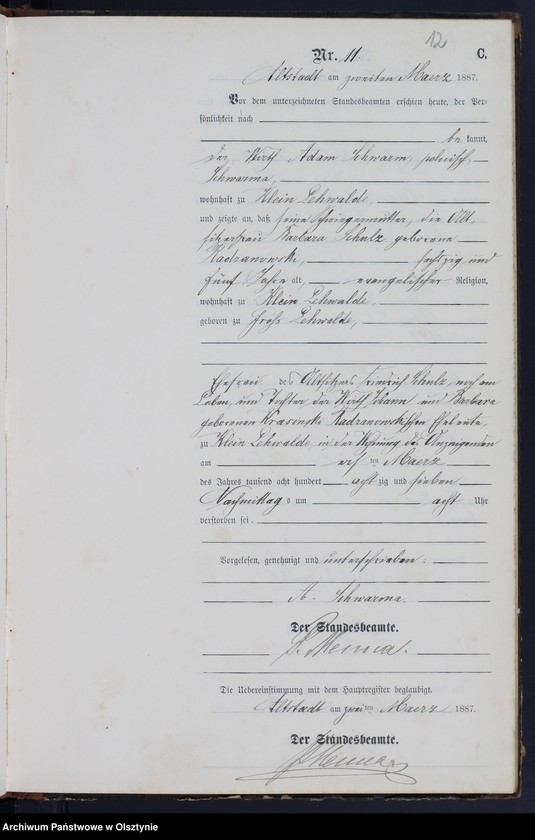 12
Nr. 11. C.
Altstadt am zweiten Maerz 1887.
Vor dem unterzeichneten Standesbeamten erschien heute, der Per-
sönlichkeit nach
be kannt,
der Wirth Adam Schwarm, polnisch
Schwarma,
wohnhaft zu Klein Lehwalde,
und zeigte an, daß seine Schwiegermutter, die Alt-
sitzerfrau Barbara Schulz geborene
Radzanowski, sechszig und
fünf Jahre alt, evangelischer Religion,
wohnhaft zu Klein Lehwalde,
geboren zu Groß Lehwalde,
Ehefrau des Altsitzers Heinrich Schulz, noch am
Leben, und Tochter der Wirth Johann und Barbara
geborenen Krasinski Radzanowskischen Eheleute,
zu Klein Lehwalde in der Wohnung des Anzeigenden
am ersten Maerz
des Jahres tausend acht hundert acht zig und sieben
Nachmittag s um acht Uhr
verstorben sei.
Vorgelesen, genehmigt und unterschrieben:
A. Schwarma.
Der Standesbeamte.
Die Uebereinstimmung mit dem Hauptregister beglaubigt.
Altstadt am zweiten Maerz 1887.
Der Standesbeamte.
Archiwum Państwowe w Olsztynie